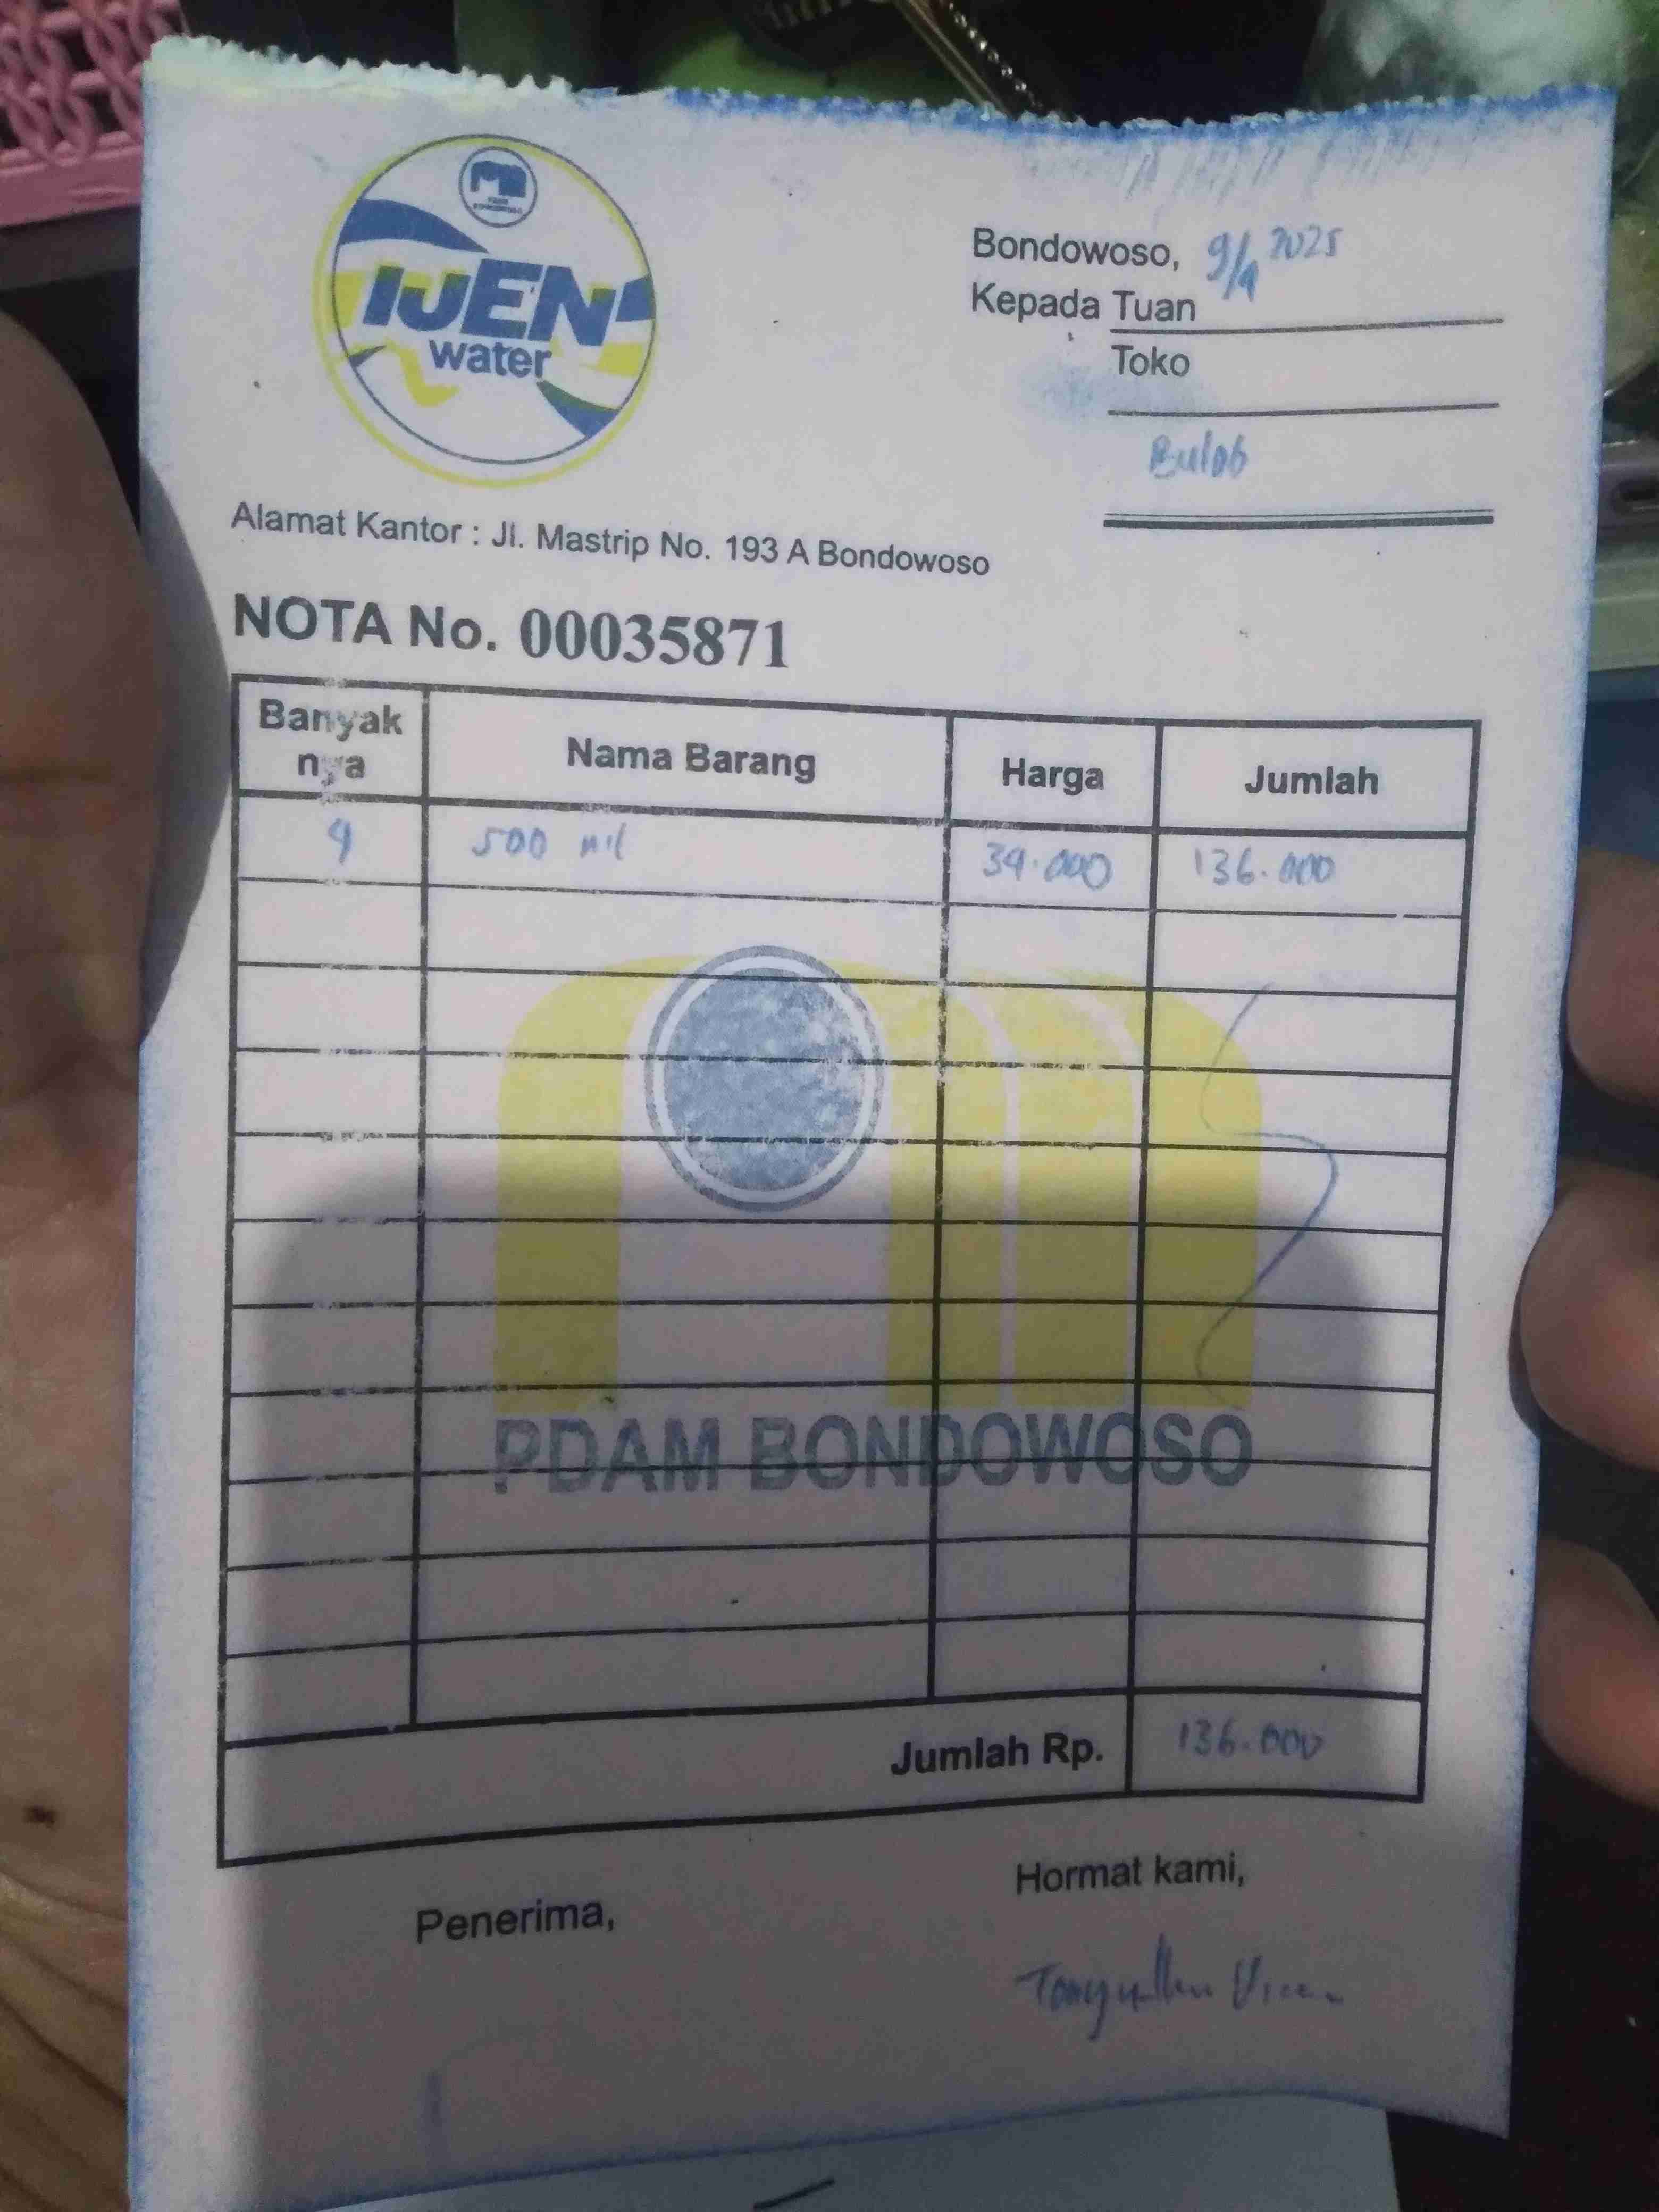 IJEN
water
Bondowoso, 9/9 2025
Kepada Tuan
Toko
Bulog
Alamat Kantor : Jl. Mastrip No. 193 A Bondowoso
NOTA No. 00035871
Banyak nya Nama Barang Harga Jumlah
4 500 ml 34.000 136.000
PDAM BONDOWOSO
Jumlah Rp. 136.000
Penerima,
Hormat kami,